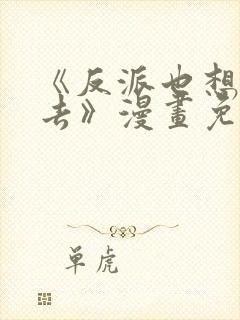 《反派也想
去》漫畫免
单虎